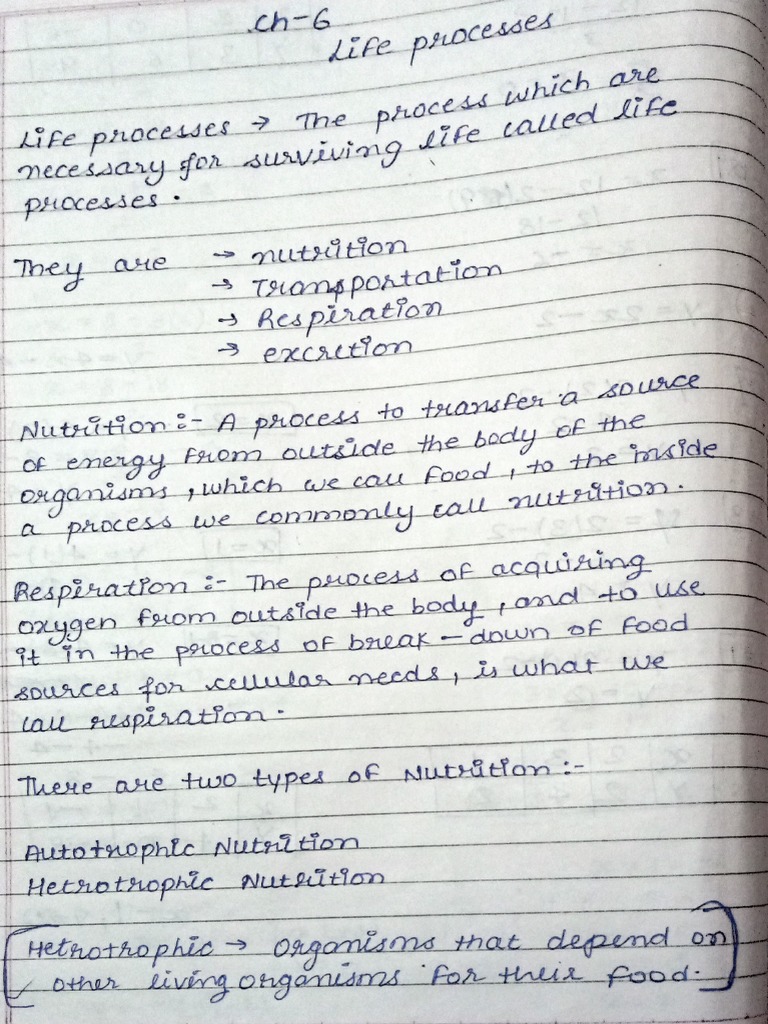 Ch-6
Life processes
Life processes → The process which are
necessary for surviving life called life
processes.
They are → nutrition
→ Transportation
→ Respiration
→ excretion
Nutrition :- A process to transfer a source
of energy from outside the body of the
organisms, which we call food, to the inside
a process we commonly call nutrition.
Respiration :- The process of acquiring
oxygen from outside the body, and to use
it in the process of break-down of food
sources for cellular needs, is what we
call respiration.
There are two types of Nutrition :-
Autotrophic Nutrition
Hetrotrophic Nutrition
[Hetrotrophic → Organisms that depend on
other living organisms for their food.]